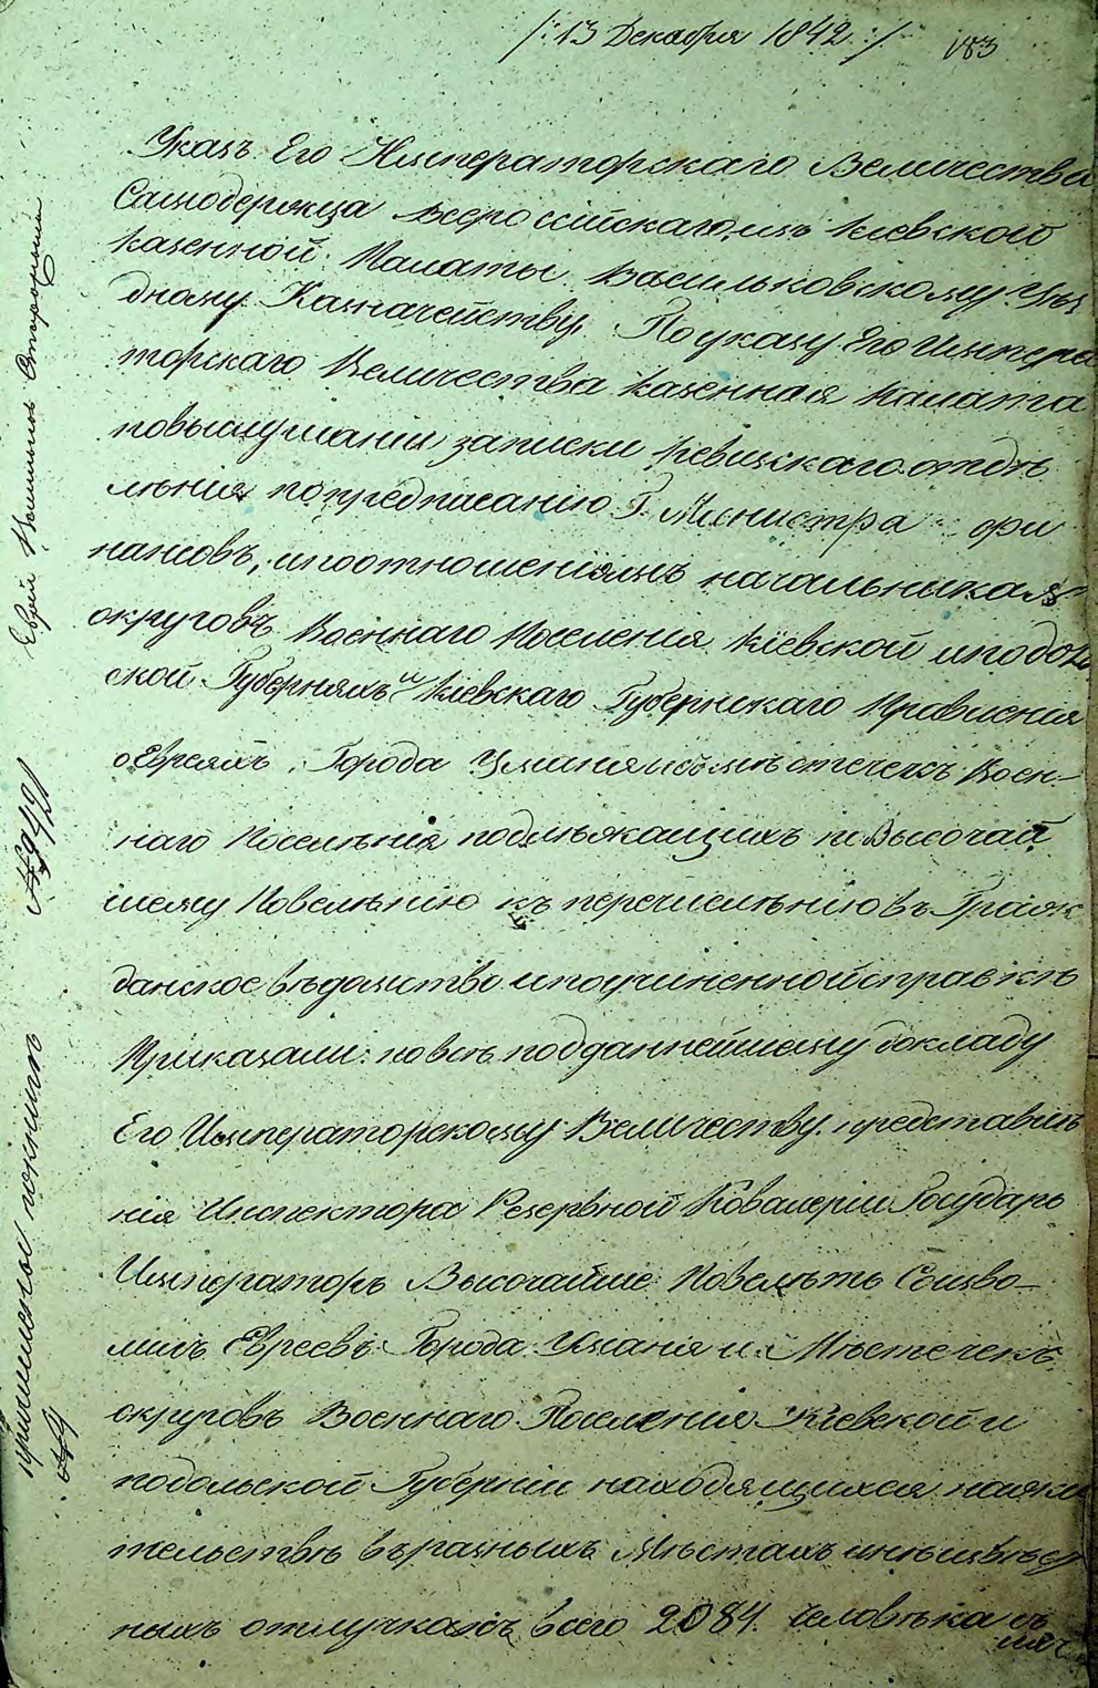 /: 13 Декабря 1842 :/ 183
Указъ Его Императорскаго Величества
Самодержца всероссійскаго, изъ кіевской
казенной Палаты Васильковскому Уѣз
дному Казначейству. По указу Его Импера
торскаго Величества казенная палата
повыслушаніи записки ревизскаго отдѣ
лѣнія попредписанію Г. Министра фи
нансовъ, ипоотношеніямъ начальника
округовъ Военнаго Поселенія кіевской иподоль
ской Губерніяхъ и Кіевскаго Губернскаго Правленія
оЕвреяхъ, Города Уманя имѣстечекъ Воен-
наго Поселѣнія подлѣжащихъ по Высочай
шему Повелѣнію къ перечислѣнію въ Граж
данское вѣдомство ипоучиненной справкѣ
Приказали: повсѣподданнейшему докладу
Его Императорскому Величеству представлѣ
нія Инспектора Резервной Ковалеріи Государь
Императоръ Высочайше Повелѣть Соизво-
лилъ Евреевъ Города Уманя и Мѣстечекъ
округовъ Военнаго Поселенія Кіевской и
подольской Губерніи находящихся нажи
тельствѣ въ разныхъ Мѣстахъ инѣизвѣст
ныхъ отлучкахъ всего 2084 человѣка съ
Еврей
№9421
причислены покнигѣ
№